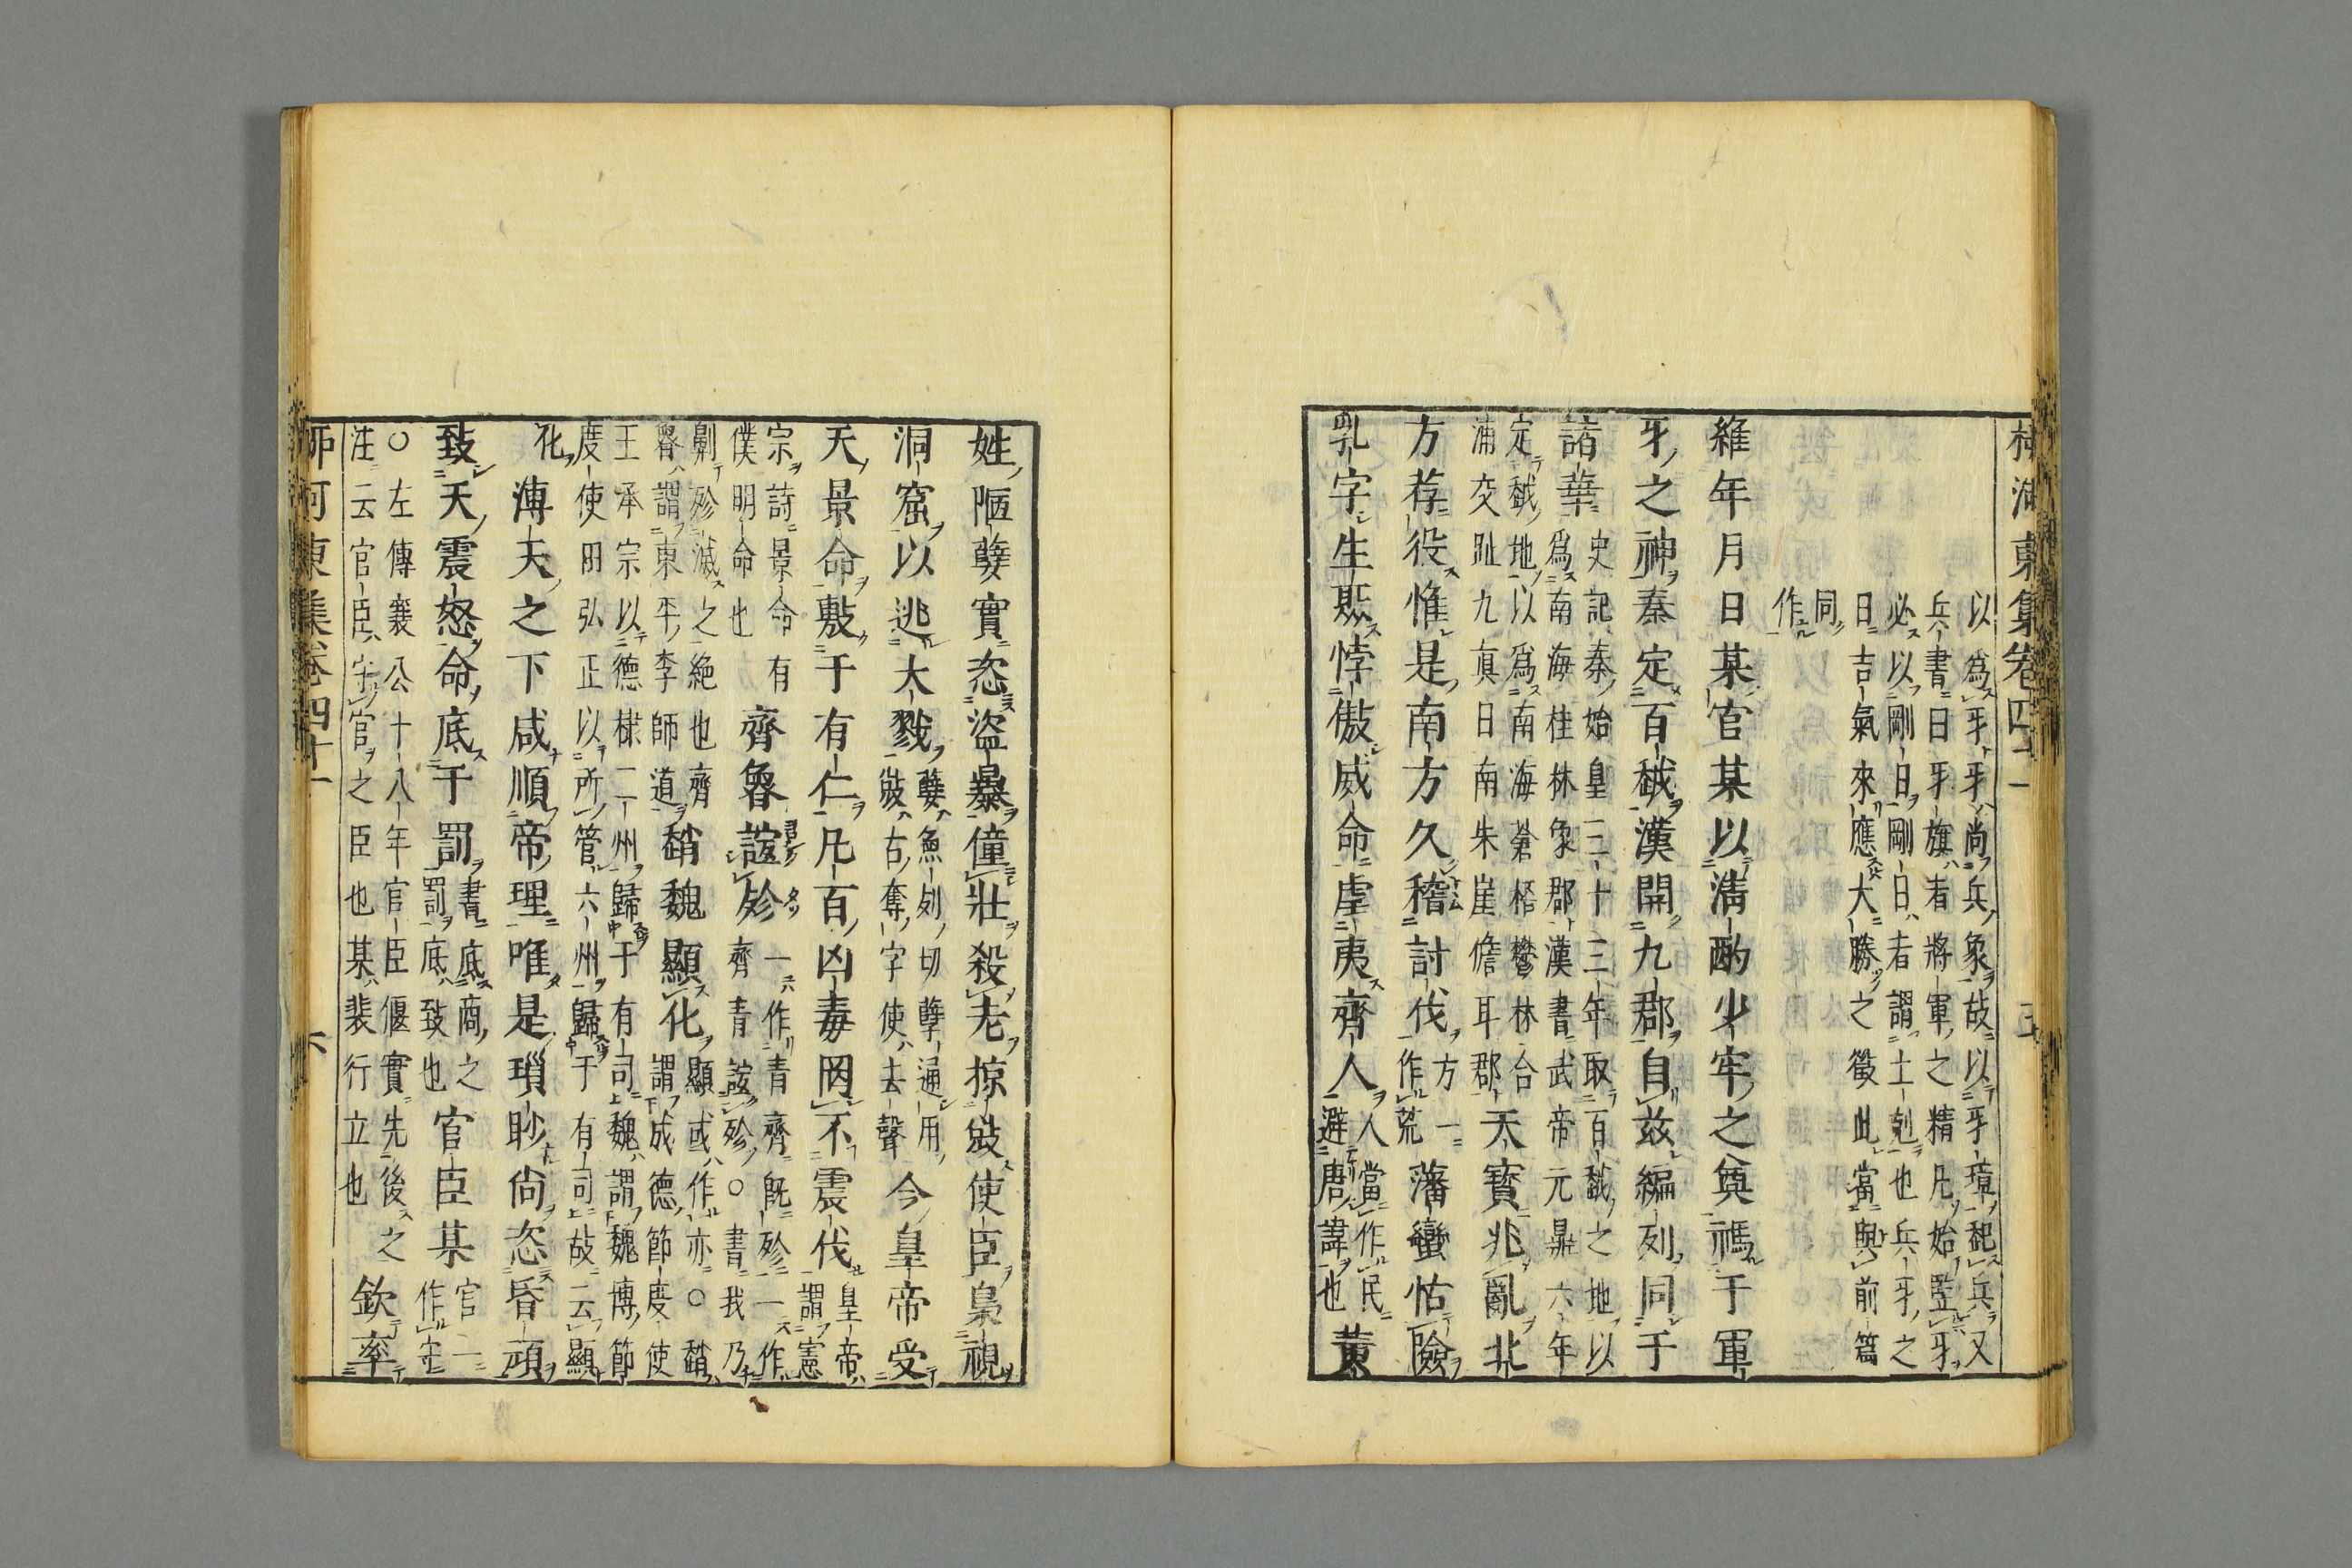 河東集卷四十一
以爲牙牙尚兵象故以牙璋起兵又
兵書曰牙旗者將軍之精凡始竪牙
必以剛日剛日者謂上剋也兵牙之
日吉氣來應大勝之徵此當與前篇
同
作
維年月日某官某以淸酌少牢之奠禡于軍
牙之神秦定百越漢開九郡自玆編列同于
諸華
史記秦始皇三十三年取百越之地以
爲南海桂林象郡漢書武帝元鼎六年
定越地以爲南海蒼梧鬱林合
浦交趾九眞日南朱崖儋耳郡
天寶兆亂北
方荐役惟是南方久稽討伐
方一
作荒
藩蠻怙險
乳字生㷱悖傲威命虐夷齊人
人當作民
避唐諱也
黄
姓陋孽實恣盜暴僮壯殺老掠敓使臣梟視
洞窟以逃大戮
孽魚列切孽通用
敓古奪字使去聲
今皇帝受
天景命敷于有仁凡百凶毒罔不震伐
皇帝
謂憲
宗詩景命有
僕明命也
齊魯誼殄
一作青齊旣殄一作
齊青誼殄○書我乃
劓殄滅之絶也齊
魯謂東平李師道
嵇魏顯化
顯或作亦○嵇
謂成德節度使
王承宗以德棣二州歸于有司魏謂魏博節
度使田弘正以所管六州歸于有司故云顯
化
溥天之下咸順帝理唯是瑣眇尙恣昏頑
致天震怒命底于罰
書底商之
罰底致也
官臣某
官一
作守
○左傳襄公十八年官臣偃實先後之
注云官臣守官之臣也某裴行立也
欽率
河東集卷四十一
六